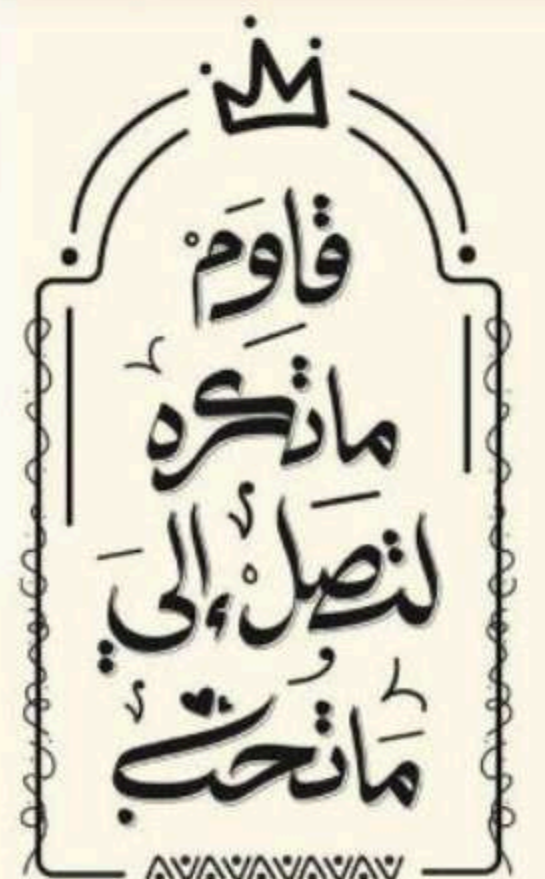 قاوَمْ
ما تَكره
لتَصلْ إليَ
مَا تُحبّ